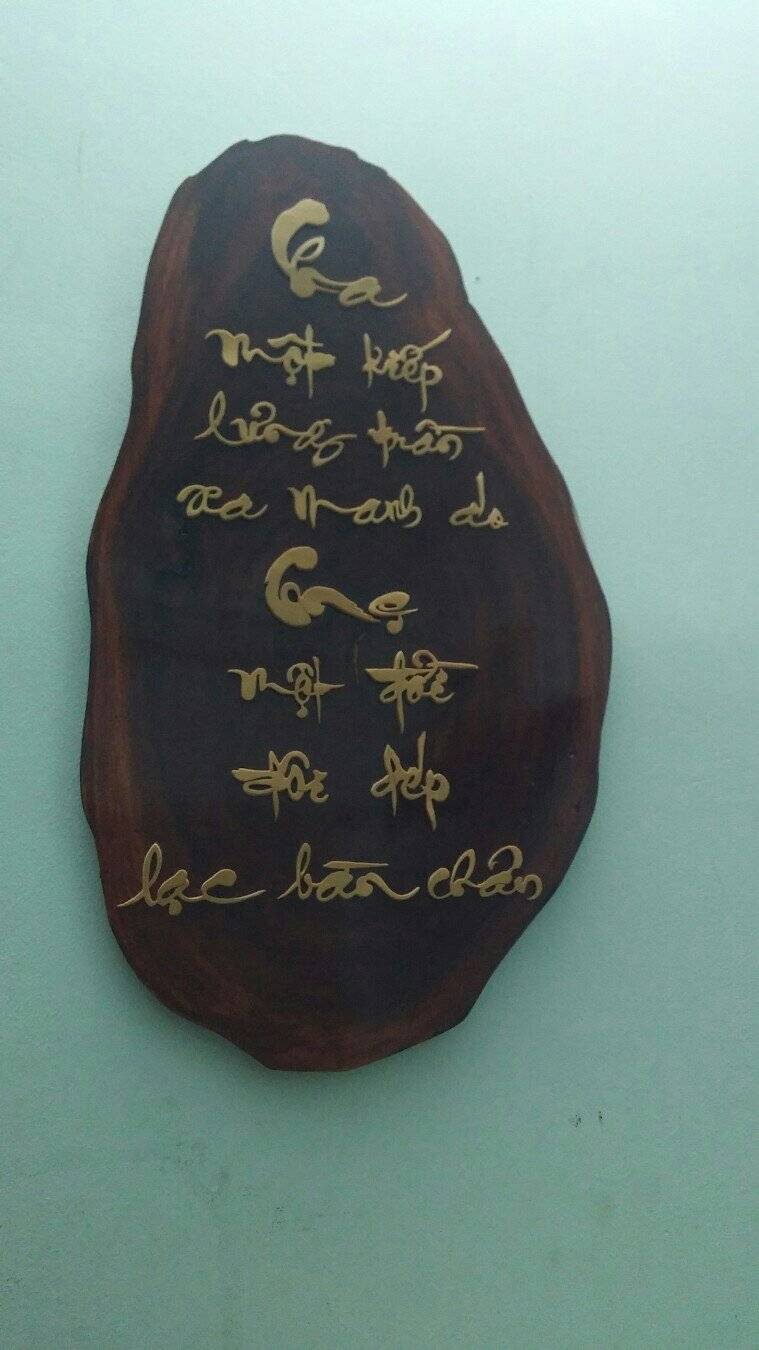 Cha
một kiếp
lưng trần
xa manh áo
Mẹ
một đời
đôi dép
lạc bàn chân